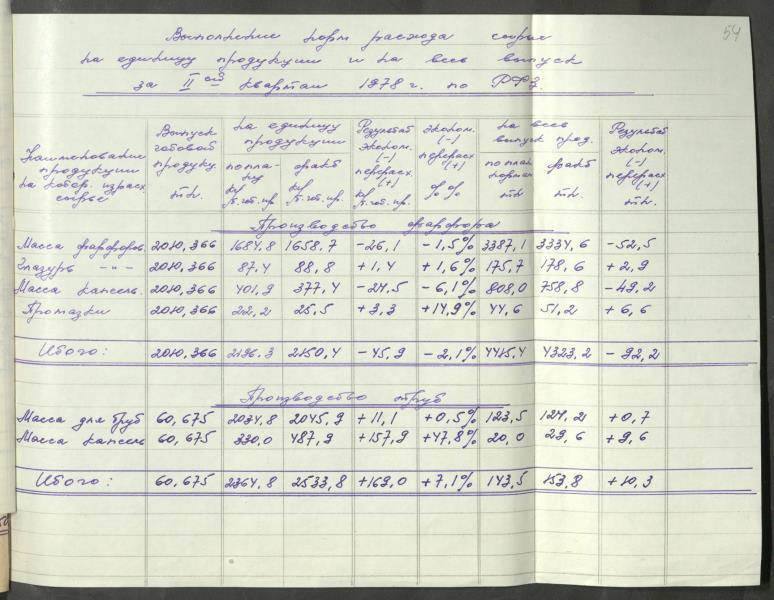 54
Выполнение норм расхода сырья
на единицу продукции и на весь выпуск
за II ой квартал 1978 г. по РФЗ.
Наименование продукции на котор. израсх. сырье | Выпуск готовой продукц. тн. | на единицу продукции | Результат эконом. (-) перерасх. (+) кг/т.гот.пр. | эконом. (-) перерасх (+) % % | на весь выпуск прод. | Результат эконом. (-) перерасх (+) тн.
по плану кг/т.гот.пр. | факт кг/т.гот.пр. | по план. нормам тн | факт. тн.
Производство фарфора
Масса фарфоров. 2010,366 1684,8 1658,7 -26,1 -1,5% 3387,1 3334,6 -52,5
Глазурь -"- 2010,366 87,4 88,8 +1,4 +1,6% 175,7 178,6 +2,9
Масса капсель. 2010,366 401,9 377,4 -24,5 -6,1% 808,0 758,8 -49,2
Промазки 2010,366 22,2 25,5 +3,3 +14,9% 44,6 51,2 +6,6
Итого: 2010,366 2196,3 2150,4 -45,9 -2,1% 4415,4 4323,2 -92,2
Производство труб
Масса для труб 60,675 2034,8 2045,9 +11,1 +0,5% 123,5 124,2 +0,7
Масса капсель 60,675 330,0 487,9 +157,9 +47,8% 20,0 29,6 +9,6
Итого: 60,675 2364,8 2533,8 +169,0 +7,1% 143,5 153,8 +10,3